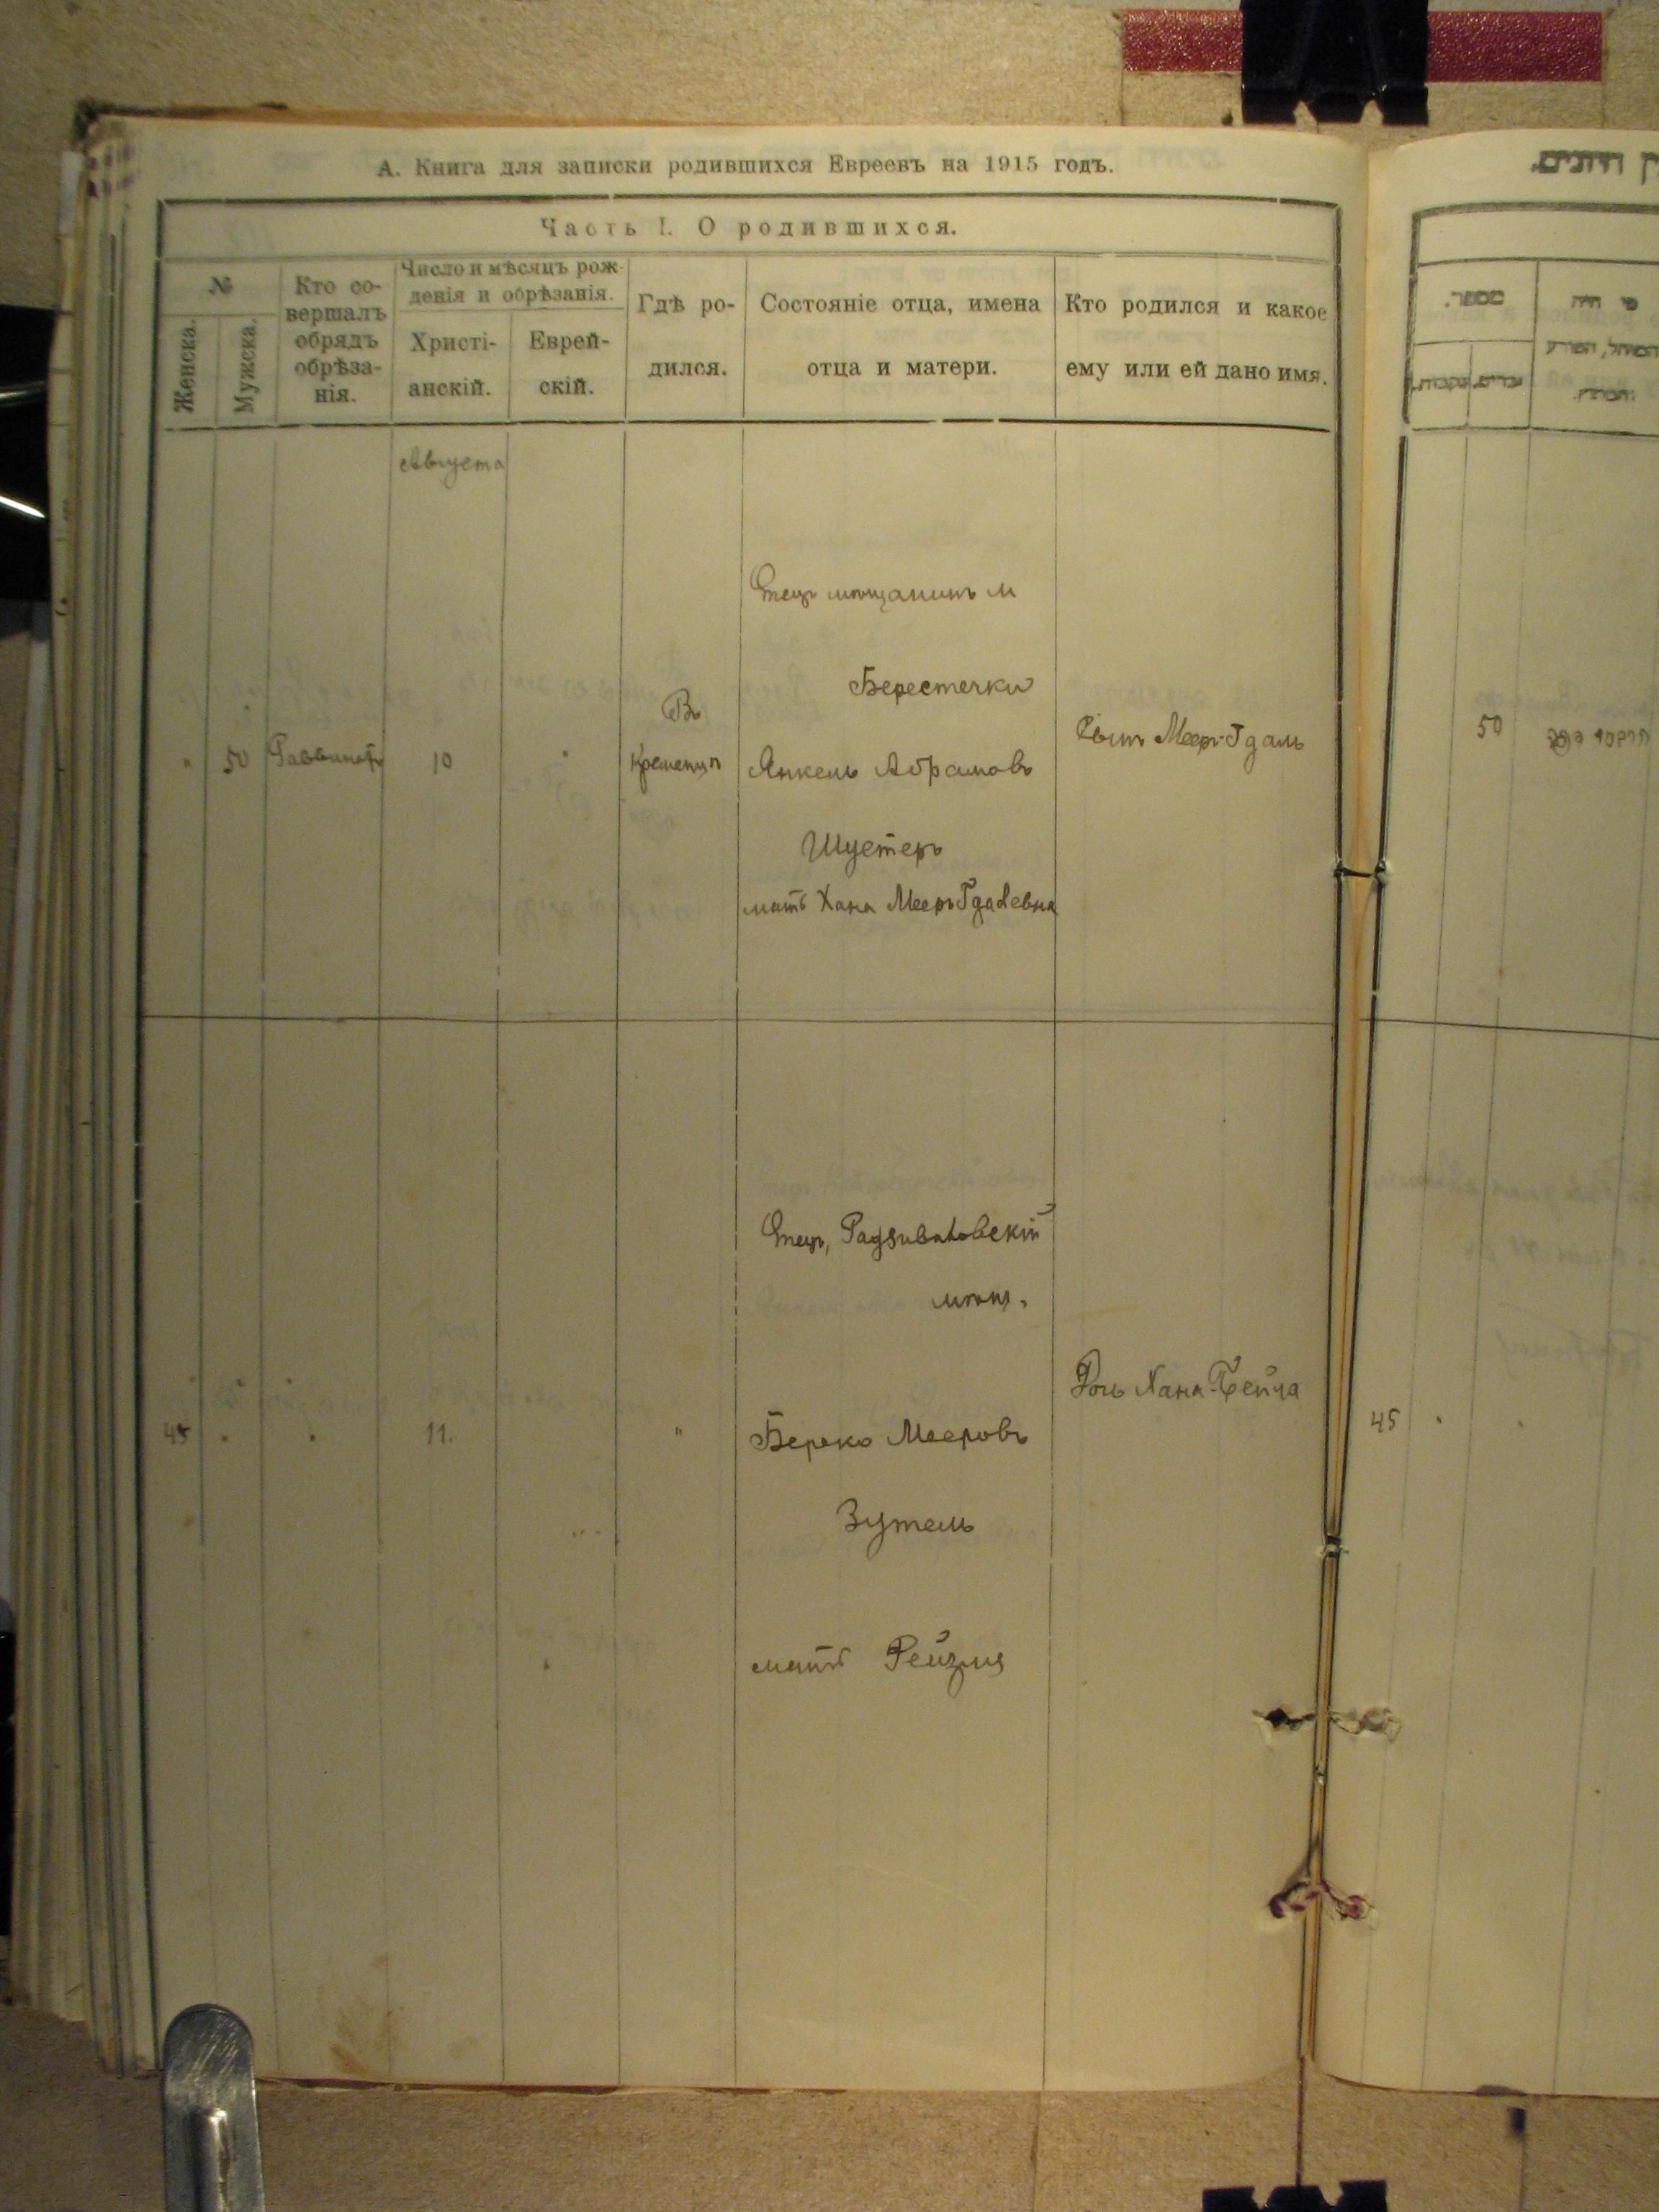 А. Книга для записки родившихся Евреевъ на 1915 годъ.
Часть I. О родившихся.
№
Женска.
Мужска.
Кто со-
вершалъ
обрядъ
обрѣза-
нія.
Число и мѣсяцъ рож-
денія и обрѣзанія.
Христі-
анскій.
Еврей-
скій.
Гдѣ ро-
дился.
Состояніе отца, имена
отца и матери.
Кто родился и какое
ему или ей дано имя.
Августа
Отецъ мѣщанинъ м
Берестечки
" 50
10 "
Въ
Кременцѣ
Янкель Абрамовъ
Шустеръ
мать Хана Мееръ Гдалевна
Сынъ Мееръ-Гдаль
50
Отецъ, Радзивиловскій
мѣщ.
45 " " 11. "
Берко Мееровъ
Зутель
мать Рейзля
Дочь Хана-Бейла
45 " "